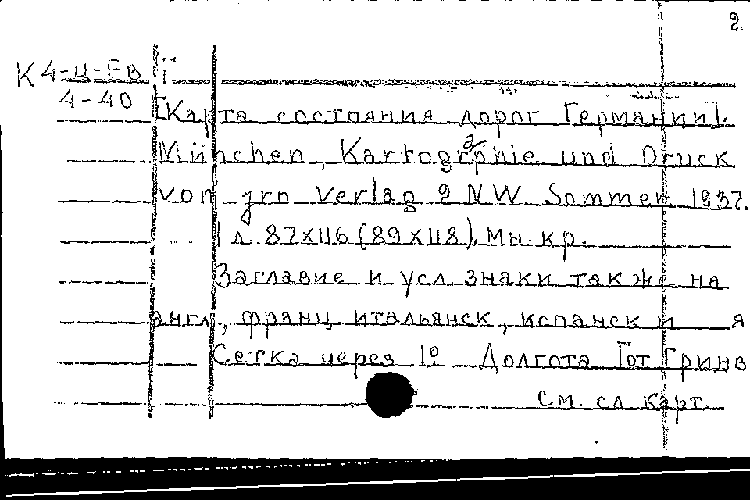 2.
К 4-Ц-Ев
4-40
[Карта состояния дорог Германии].
München, Kartogrphie und Druck
von jro Verlag 2 NW. Sommer 1937.
1 л. 87х116 (89х118), мн. кр.
Заглавие и усл. знаки также на
англ, франц итальянск, испанск я
Сетка через 1° Долгота от Гринв
См. сл карт